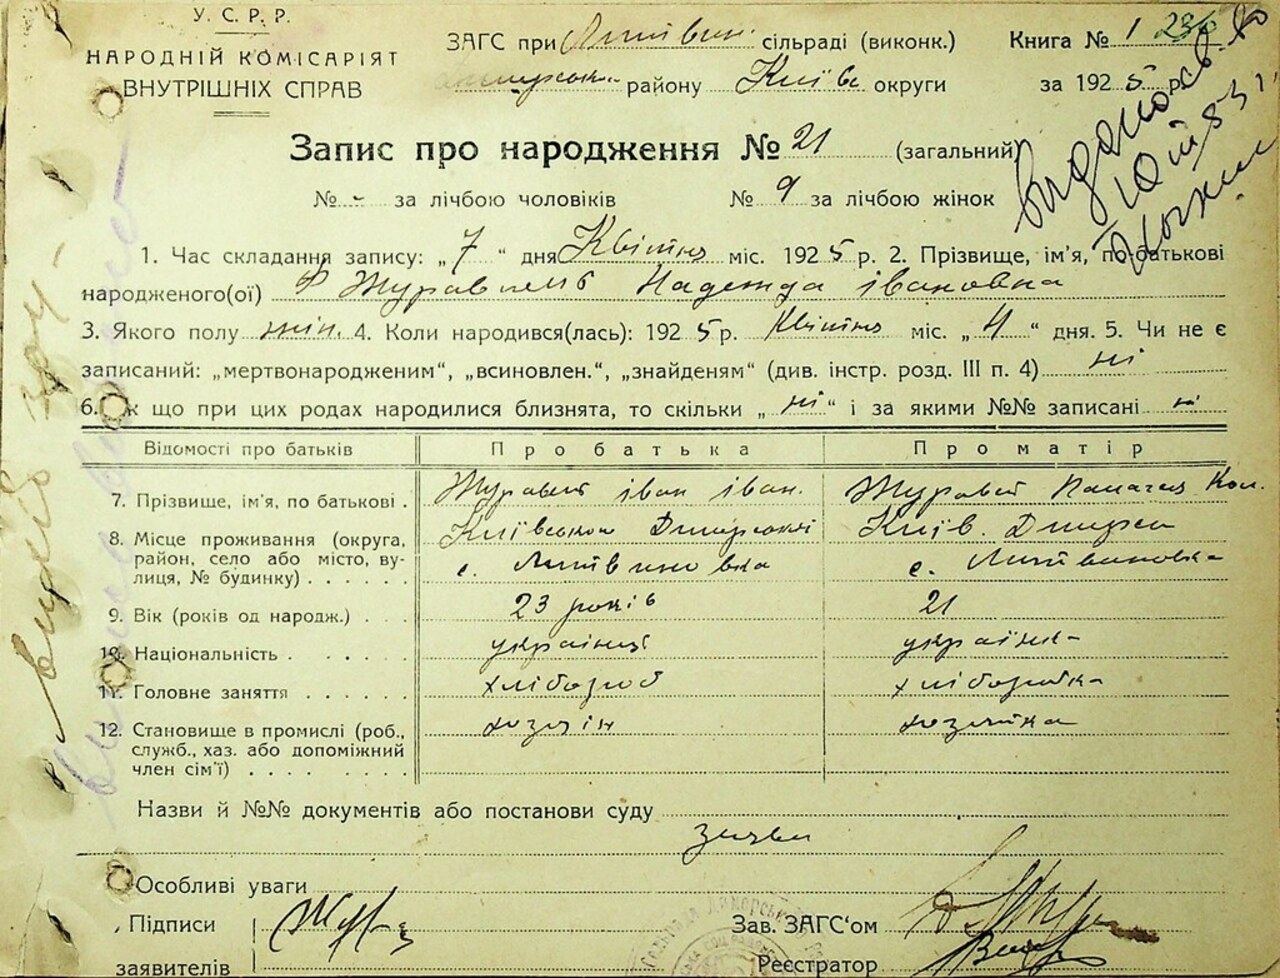 У. С. Р. Р.
НАРОДНІЙ КОМІСАРІЯТ
ВНУТРІШНІХ СПРАВ
ЗАГС при Литвин. сільраді (виконк.)
району Київс округи
Книга № 1 236
за 1925 р.
Запис про народження № 21 (загальний)
№ - за лічбою чоловіків № 9 за лічбою жінок
1. Час складання запису: „7“ дня Квітня міс. 1925 р. 2. Прізвище, ім'я, по-батькові
народженого(ої) Журавель Надежда івановна
3. Якого полу жін. 4. Коли народився(лась): 1925 р. Квітня міс. „4“ дня. 5. Чи не є
записаний: „мертвонародженим“, „всиновлен.“, „знайденям“ (див. інстр. розд. III п. 4) ні
6. к що при цих родах народилися близнята, то скільки „ні“ і за якими №№ записані ні
Відомості про батьків Про батька Про матір
7. Прізвище, ім'я, по батькові . Журавель іван іван. Журавель
8. Місце проживання (округа, район, село або місто, вулиця, № будинку) . . . . . . Київської Димерський Київ. Димер
с. Литвиновка с. Литвиновка
9. Вік (років од народж.) . . . 23 років 21
10. Національність . . . . . українець українка
11. Головне заняття . . . . . . хлібороб хліборобка
12. Становище в промислі (роб., служб., хаз. або допоміжний член сім'ї) . . . . . . . хозяїн хозяйка
Назви й №№ документів або постанови суду
заява
Особливі уваги
Підписи
заявителів
Зав. ЗАГС‘ом
Реєстратор